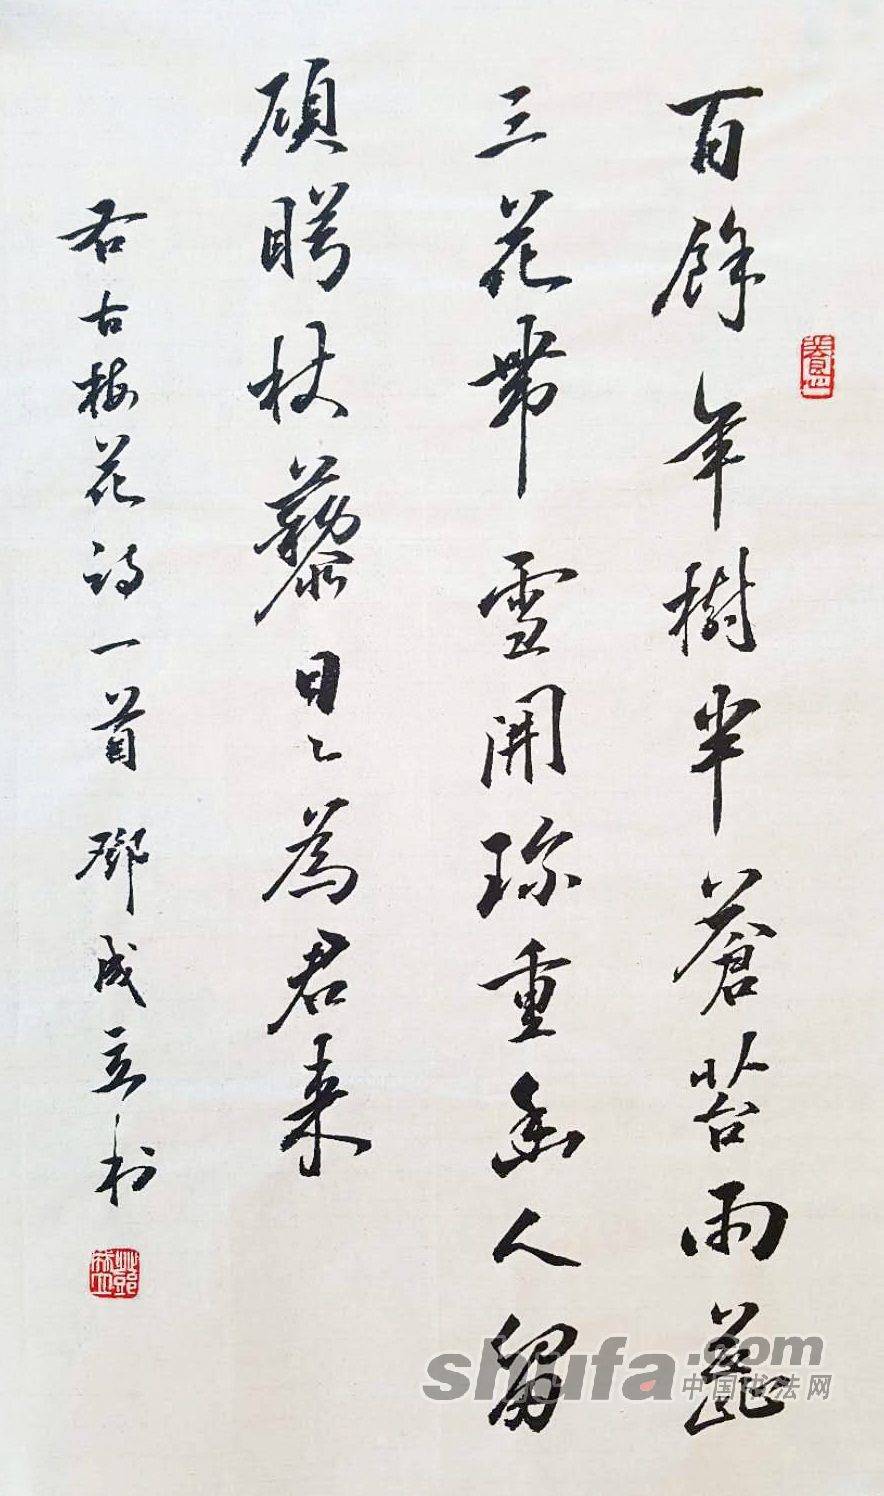 百餘年樹半蒼苔兩蕊
三花帶雪開珍重幽人留
頋盻杖藜日々為君来
右古梅花詩一首 鄧成立书
shufa.com
中国书法网